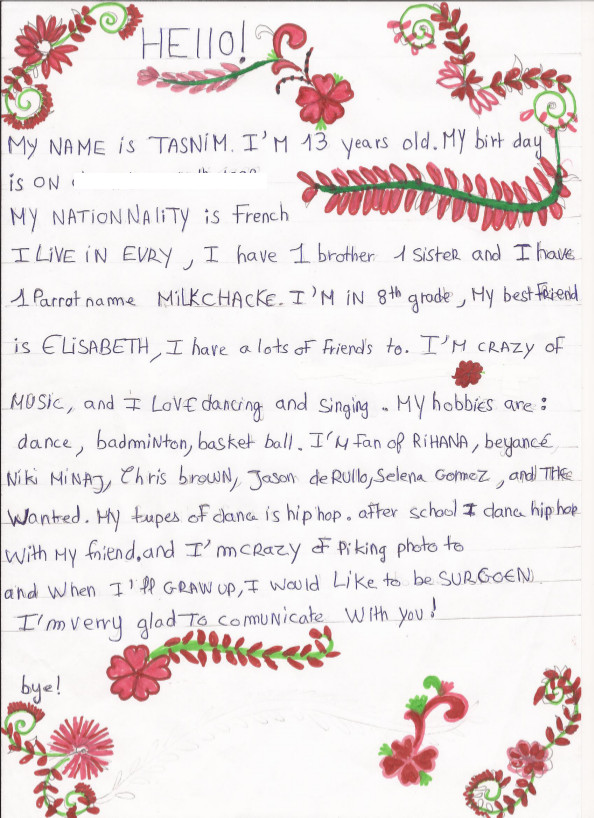 HEllO!
MY NAME is TASNiM. I'M 13 years old. MY birt day
is ON
MY NATIONNALITY is French
I LIVE IN EVRY, I have 1 brother 1 sister and I have
1 Parrot name MiLKCHACKE. I'M IN 8th grade, My best Friend
is ELiSABETH, I have a lots of friends to. I'M CRAZY of
MUSIC, and I LOVE dancing and singing. MY hobbies are:
dance, badminton, basket ball. I'M Fan of RIHANA, beyancé,
Niki MiNAJ, Chris brown, Jason deRullo, Selena Gomez, and THe
Wanted. MY tupes of danca is hip hop. after school I danca hip hop
With MY friend. and I'm CRAZY of Piking photo to
and When I'll GRAW UP, I would Like to be SURGOEN.
I'm verry glad To comunicate With you!
bye!